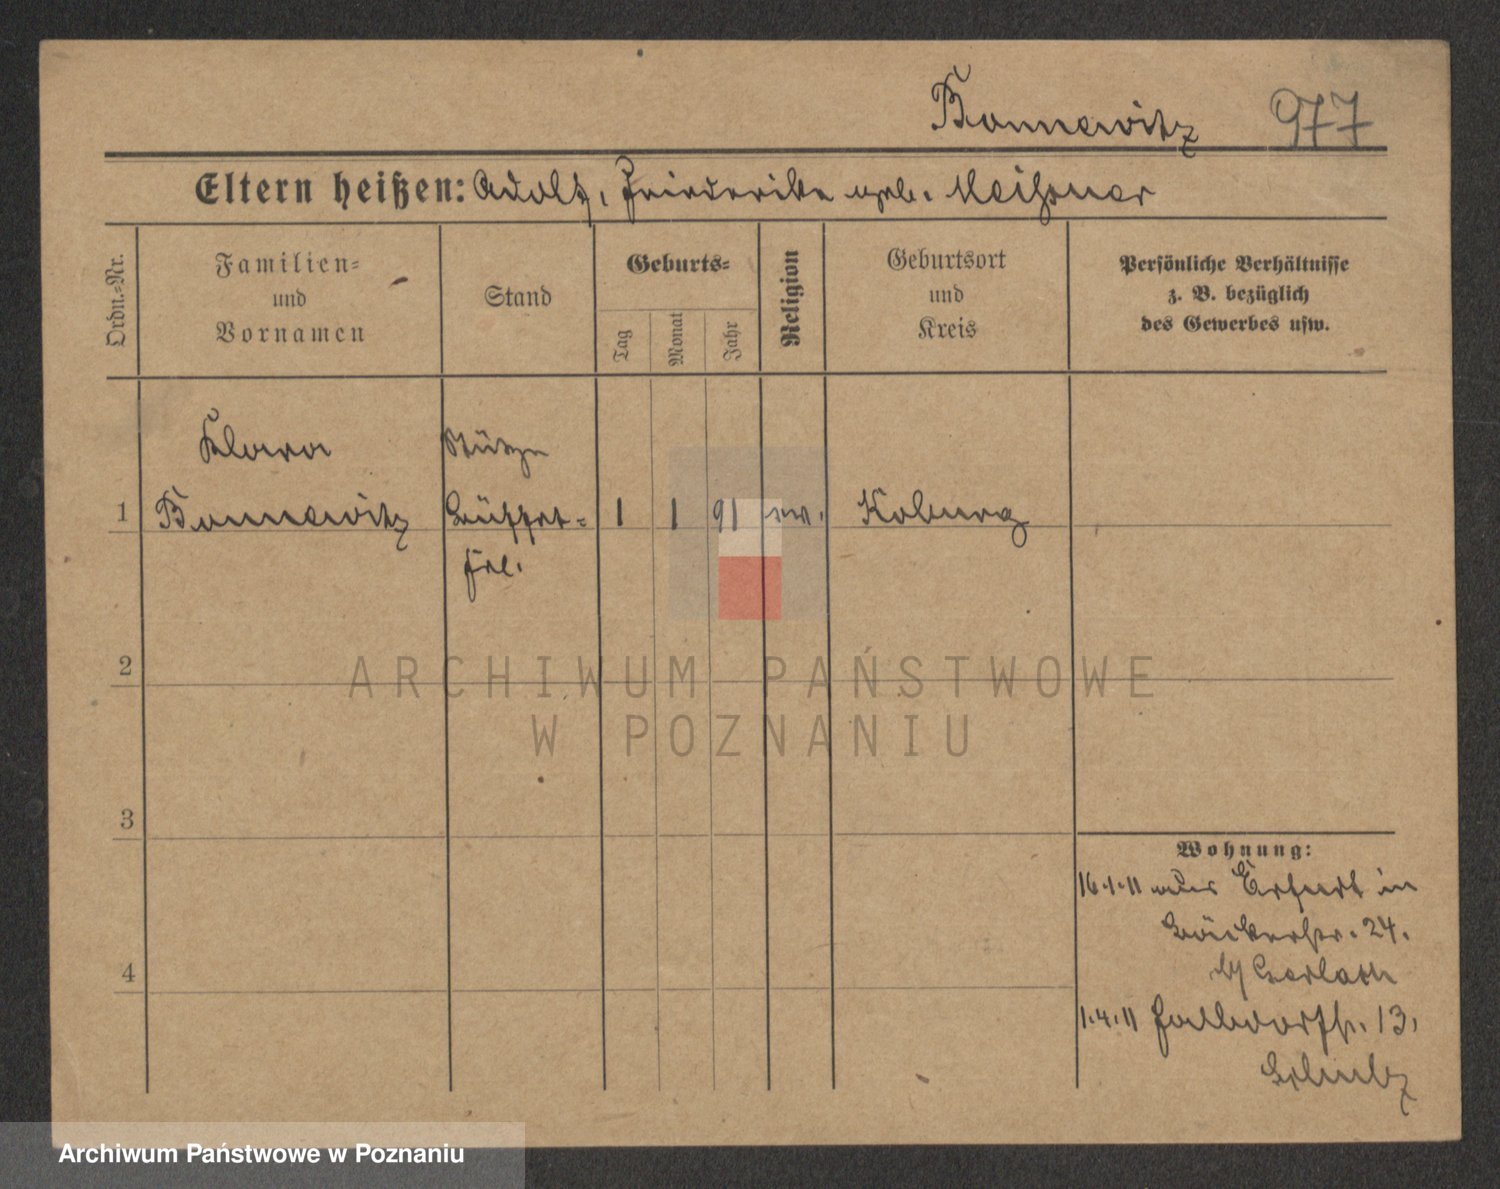 Bonnewitz 977
Eltern heißen: Adolf, Friederike geb. Meißner
Ordn.=Nr.
Familien=
und
Vornamen
Stand
Geburts=
Tag
Monat
Jahr
Religion
Geburtsort
und
Kreis
Persönliche Verhältnisse
z. B. bezüglich
des Gewerbes usw.
Klara Stütze
1 Bonnewitz Büffet= 1 1 91 ev. Koburg
Frl.
2
ARCHIWUM PAŃSTWOWE
W POZNANIU
3
Wohnung:
16.1.11 aus Erfurt in
Bäckerstr. 24.
b/ Gerlach
4
1.4.11 13,
Archiwum Państwowe w Poznaniu